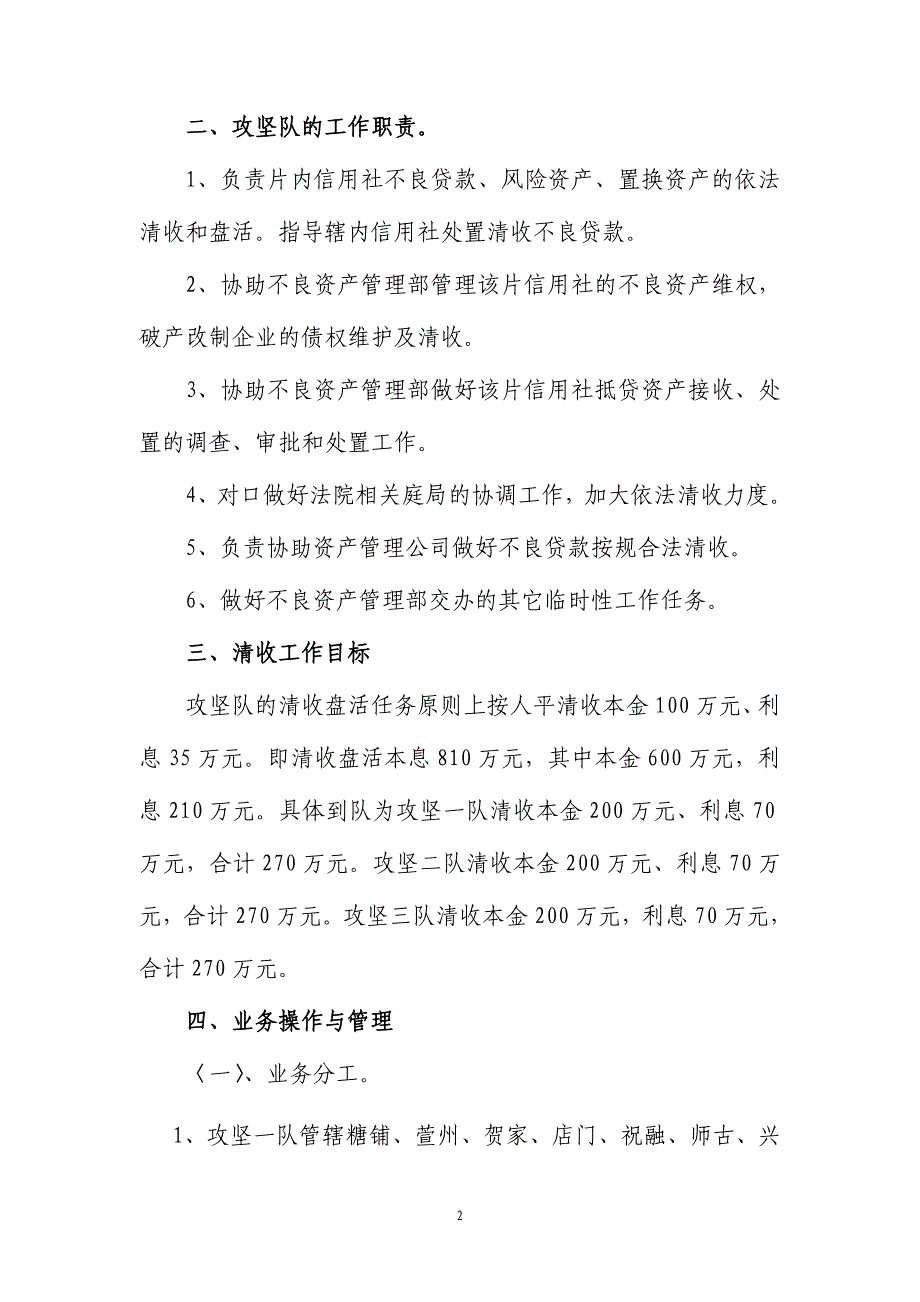 二、攻坚队的工作职责。
1、负责片内信用社不良贷款、风险资产、置换资产的依法
清收和盘活。指导辖内信用社处置清收不良贷款。
2、协助不良资产管理部管理该片信用社的不良资产维权，
破产改制企业的债权维护及清收。
3、协助不良资产管理部做好该片信用社抵贷资产接收、处
置的调查、审批和处置工作。
4、对口做好法院相关庭局的协调工作，加大依法清收力度。
5、负责协助资产管理公司做好不良贷款按规合法清收。
6、做好不良资产管理部交办的其它临时性工作任务。
三、清收工作目标
攻坚队的清收盘活任务原则上按人平清收本金 100 万元、利
息 35 万元。即清收盘活本息 810 万元，其中本金 600 万元，利
息 210 万元。具体到队为攻坚一队清收本金 200 万元、利息 70
万元，合计 270 万元。攻坚二队清收本金 200 万元、利息 70 万
元，合计 270 万元。攻坚三队清收本金 200 万元，利息 70 万元，
合计 270 万元。
四、业务操作与管理
〈一〉、业务分工。
1、攻坚一队管辖糖铺、萱州、贺家、店门、祝融、师古、兴
2